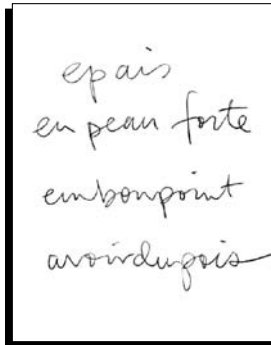 epais
en peau forte
embonpoint
avoirdupois